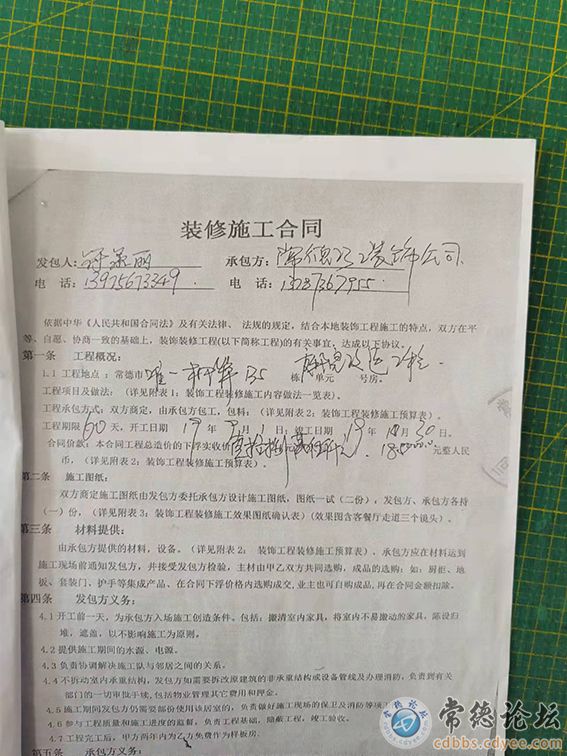 装修施工合同
发包人: 承包方: 装饰公司
电 话: 13975673349 电 话: 13787367955
依据中华《人民共和国合同法》及有关法律、法规的规定，结合本地装饰工程施工的特点，双方在平
等、自愿、协商一致的基础上，装饰装修工程(以下简称工程)的有关事宜，达成以下协议。
第一条 工程概况:
1.1 工程地点：常德市 栋 单元 号房。
工程项目及做法：（详见附表1：装饰施工内容做法一览表）。
工程承包方式：双方商定，由承包方包工，包料；（详见附表2：装饰工程装修施工预算表）。
工程期限 60 天，开工日期 19 年 月 1 日，竣工日期 19 年 10 月 30 日。
合同价款：本合同工程总造价的下浮实收价 元整人民
币，（详见附表2：装饰工程装修施工预算表）。
第二条 施工图纸:
双方商定施工图纸由发包方委托承包方设计施工图纸，图纸一试（二份），发包方、承包方各持
(一)份，（详见附表3：装饰工程装修施工效果图纸确认表）(效果图含客餐厅走道三个镜头）。
第三条 材料提供:
由承包方提供的材料，设备。（详见附表2： 装饰工程装修施工预算表），承包方应在材料达到
施工现场前通知发包方，并接受发包方检验，主材由甲乙双方共同选购，成品的选购：如：厨柜、地
板、套装门、护手等集成产品、在合同下浮价格内选购成交,业主也可自购成品,再在合同金额扣除。
第四条 发包方义务:
4.1 开工前一天，为承包方入场施工创造条件。包括：搬清室内家具，将室内不易搬动的家具，陈设归
堆，遮盖，以不影响施工为原则。
4.2 提供施工期间的水源、电源。
4.3 负责协调解决施工队与邻居之间的关系。
4.4 不拆动室内承重结构，发包方如需要拆改原建筑的非承重结构或设备管线及办理消防，负责到有关
部门的一切审批手续，包括物业管理其它费用和押金。
4.5 施工期间发包方仍需要部份使用该居室的，负责做好施工现场的保卫及消防等项
4.6 参与工程质量和施工进度的监督，负责工程基础，隐蔽工程，竣工验收。
4.7 工程完工后，甲方两年内为乙方免费作为样板房。
第五条 承包方义务:
常德论坛
cdbbs.cdyee.com